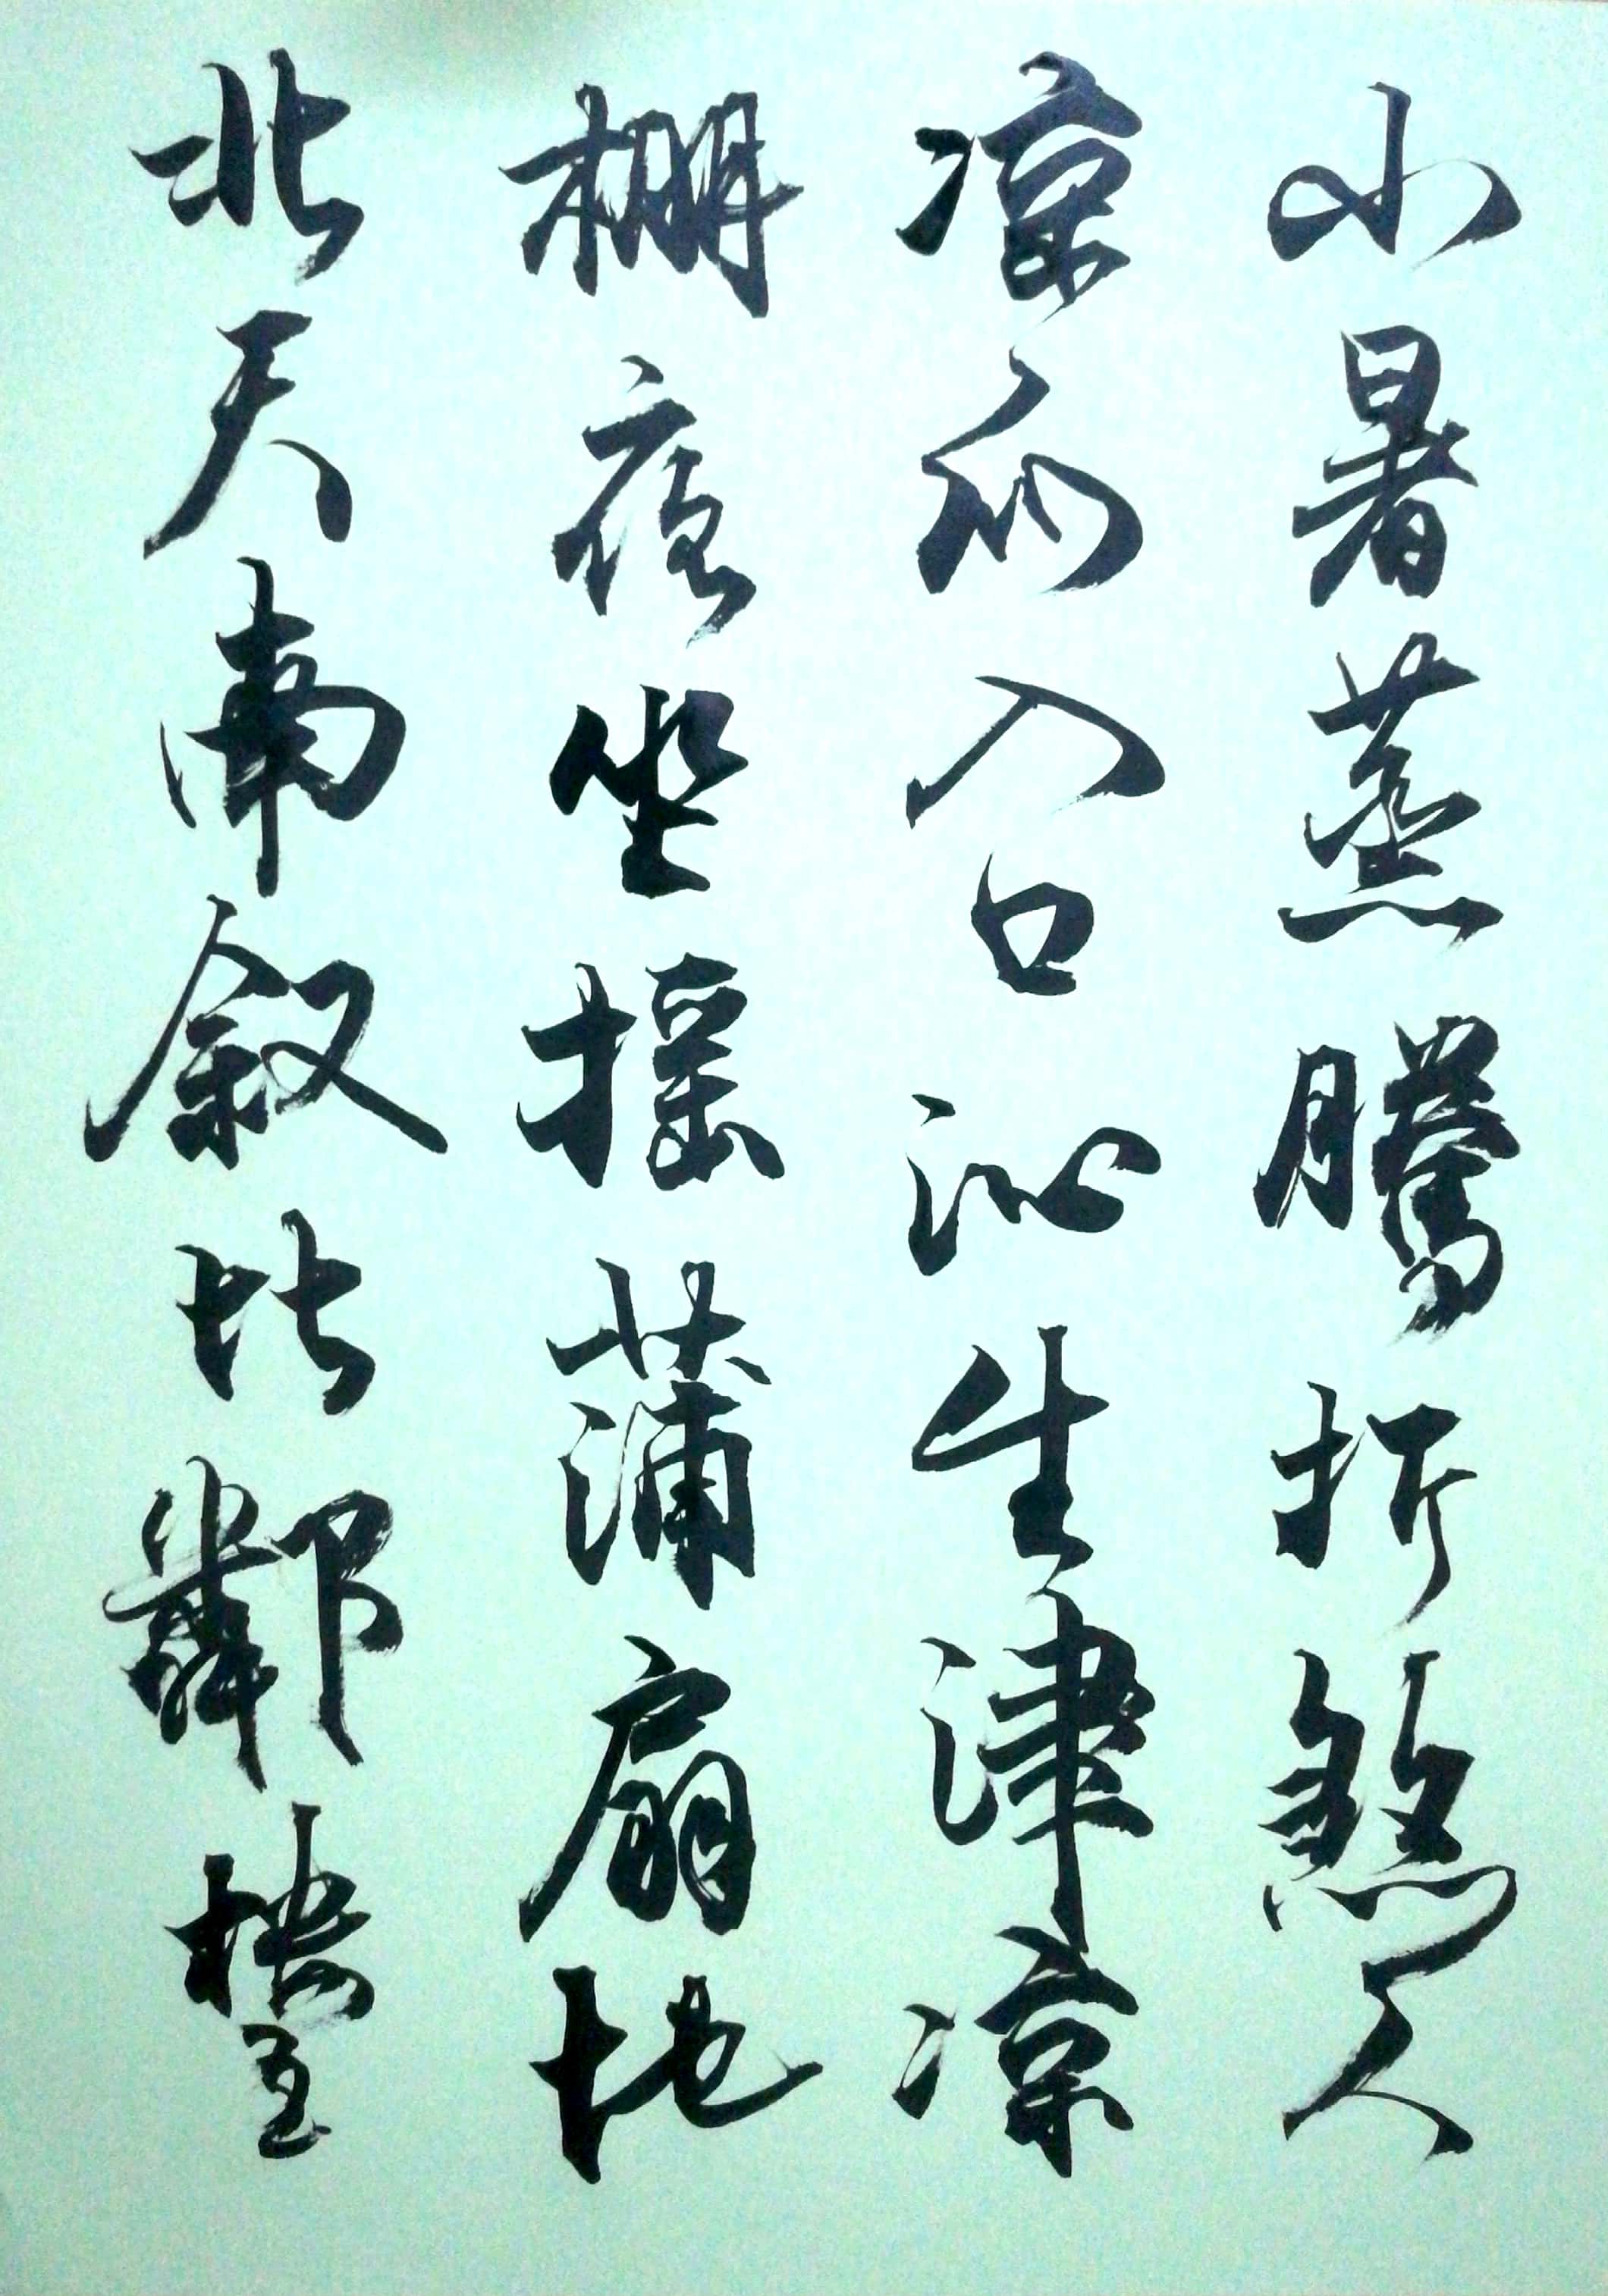 小暑蒸騰折煞人
凉瓜入口沁生津凉
棚夜坐摇蒲扇地
北天南叙比鄰